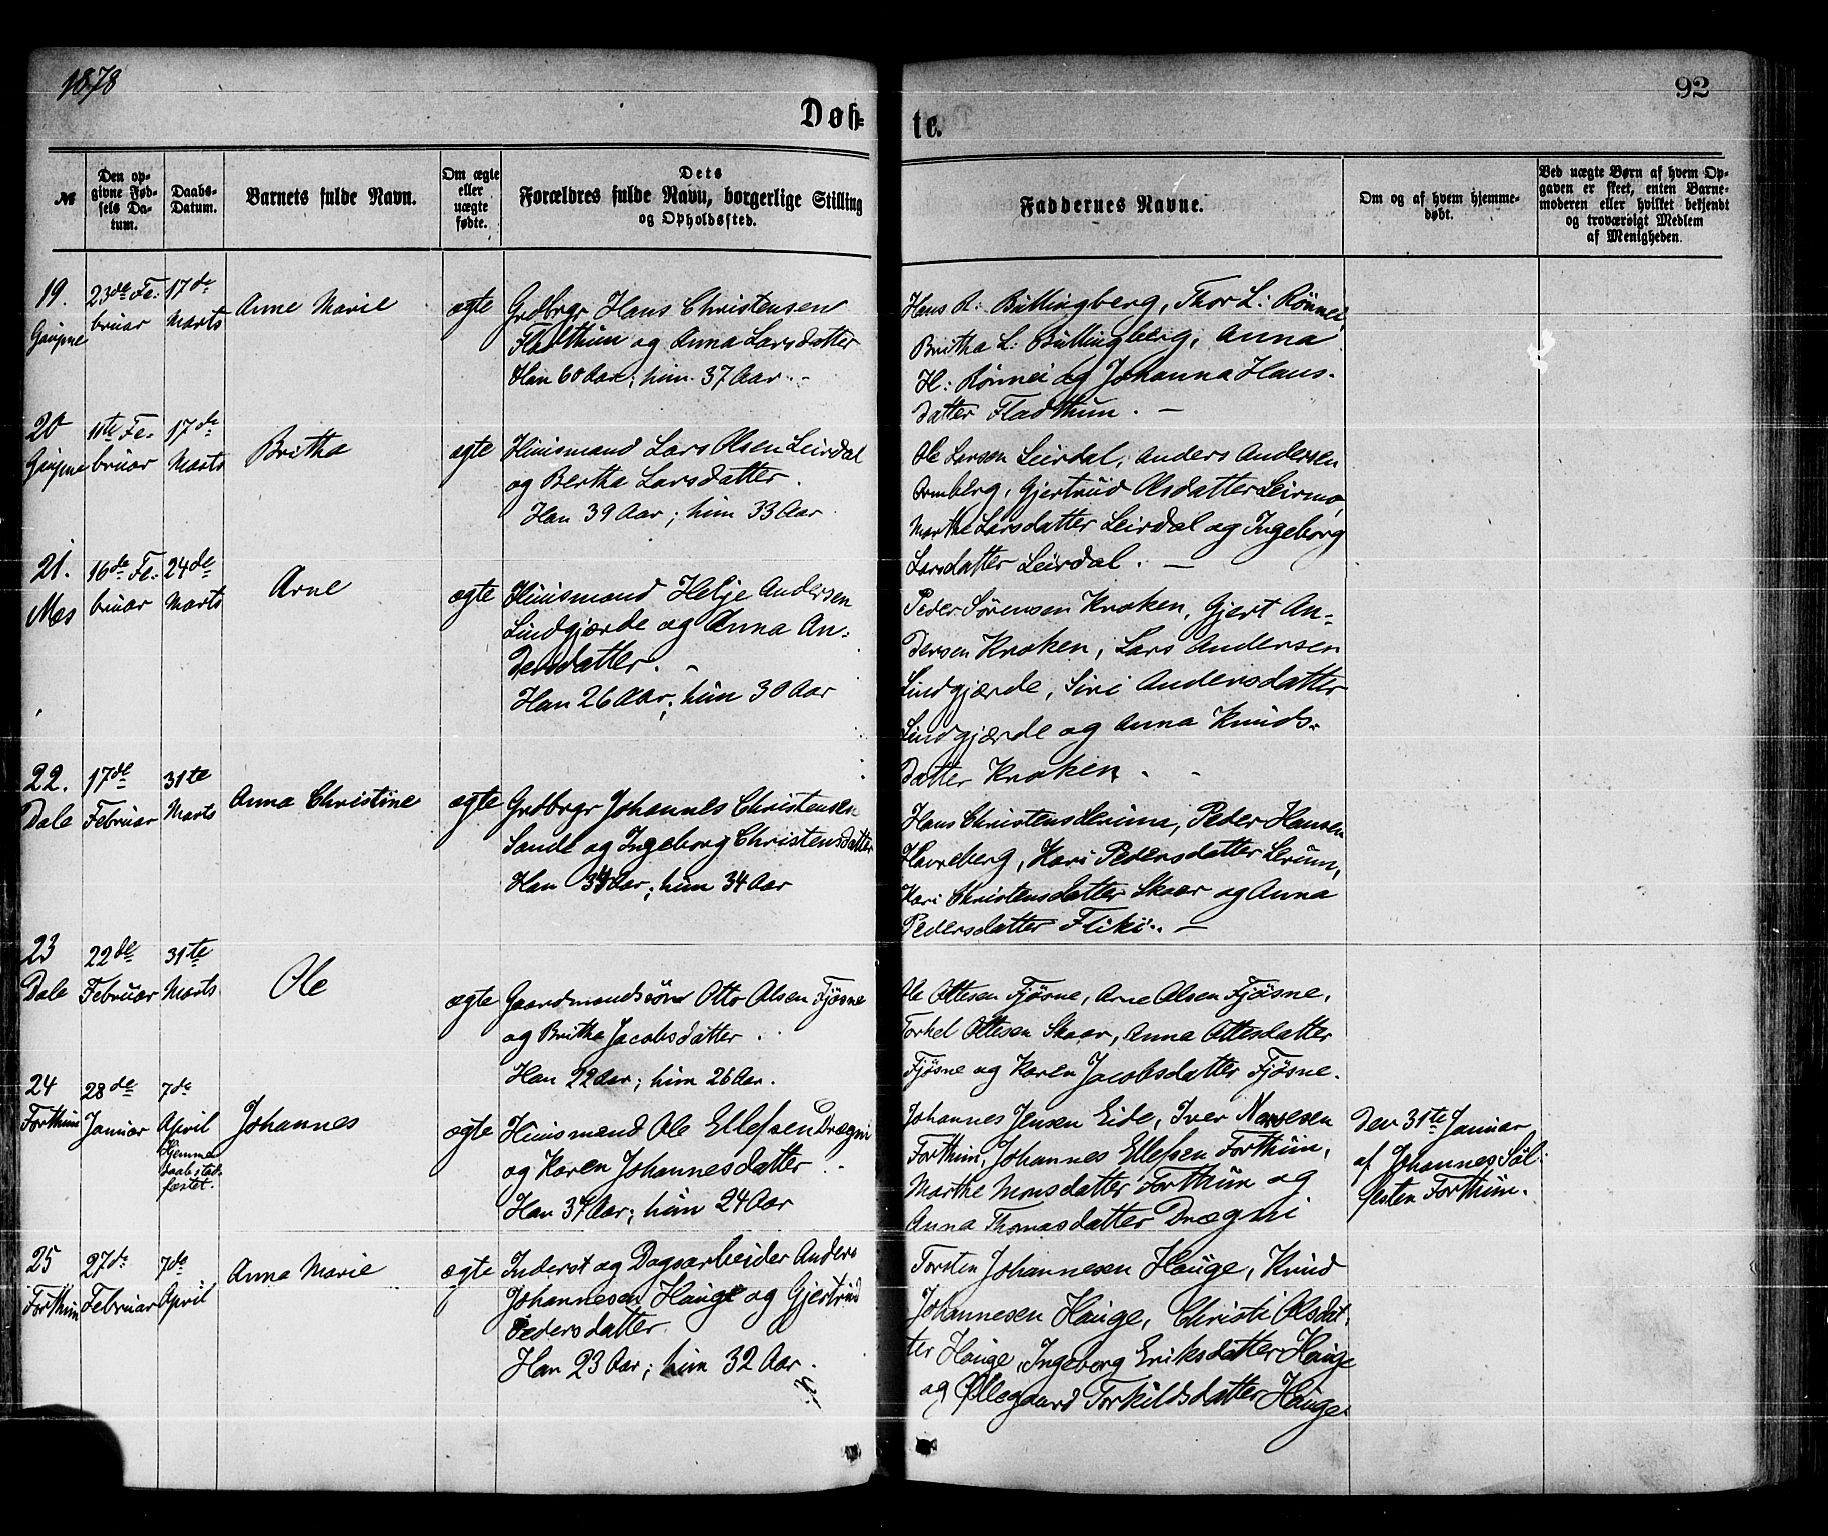 1878
92
Døb-
te.
№
Den op-
givne Fød-
sels Da-
tum.
Daabs-
Datum.
Barnets fulde Navn.
Om ægte
eller
uægte
fødte.
Dets
Forældres fulde Navn, borgerlige Stilling
og Opholdssted.
Faddernes Navne.
Om og af hvem hjemme-
døbt.
Ved uægte Børn af hvem Op-
gaven er skeet, enten Barne-
moderen eller hvilket bekjendt
og troværdigt Medlem
af Menigheden.
19.
Gaupne
23de Fe:
bruar
17de
Marts
Anne Marie
ægte
Grdbrgr Hans Christensen
Fladthun og Anna Larsdatter
Han 60 Aar; hun 37 Aar.
Hans R: Bullingberg, Thor L: Rönnei,
Britha L: Bullingberg, Anna
H: Rönnei og Johanna Hans-
datter Fladthun. —
20
Gaupne
11te Fe-
bruar
17de
Marts
Britha
ægte
Huusmand Lars Olsen Leirdal
og Bertha Larsdatter.
Han 39 Aar; hun 33 Aar.
Ole Larsen Leirdal, Anders Andersen
Ormberg, Gjertrud Olsdatter Leirmo,
Marthe Larsdatter Leirdal og Ingeborg
Larsdatter Leirdal. —
21.
Næs
16de Fe-
bruar
24de
Marts
Arne
ægte
Huusmand Helje Andersen
Lindgjærde og Anna An-
dersdatter.
Han 26 Aar; hun 30 Aar
Peder Sörensen Kroken, Gjert An-
dersen Kroken, Lars Andersen
Lindgjærde, Siri Andersdatter
Lindgjærde og Anna Knuds-
datter Kroken.
22.
Dale
17de
Februar
31te
Marts
Anna Christine
ægte
Grdbrgr Johannes Christensen
Sande og Ingeborg Christensdatter
Han Aar; hun 34 Aar
Hans Christens Lerum, Peder Hansen
Havreberg, Kari Pedersdatter Lerum,
Kari Christensdatter Skaar og Anna
Pedersdatter Fliki. —
23
Dale
22de
Februar
31te
Marts
Ole
ægte
Gaardmandssön Otto Olsen Fjösne
og Britha Jacobsdatter.
Han 22 Aar; hun 26 Aar.
Ole Ottesen Fjösne, Arne Olsen Fjösne,
Torkel Ottesen Skaar, Anna Ottesdatter
Fjösne og Karen Jacobsdatter Fjösne.
24
Forthun
28de
Januar
7de
April
Hjemme
daab stad-
fæstet.
Johannes
ægte
Huusmand Ole Ellefsen Drægni
og Karen Johannesdatter.
Han 34 Aar; hun 24 Aar
Johannes Jensen Eide, Iver
Forthun, Johannes Ellefsen Forthun,
Marthe Monsdatter Forthun og
Anna Thomasdatter Drægni
Den 31te Januar
af Johannes Söl-
festen Forthun.
25
Forthun
27de
Februar
7de
April
Anna Marie
ægte
Inderst og Dagsarbeider Anders
Johannesen Hauge og Gjertrud
Pedersdatter.
Han 23 Aar; hun 32 Aar.
Torsten Johannesen Hauge, Knud
Johannesen Hauge, Christi Olsdat-
ter Hauge, Ingeborg Eriksdatter Hauge
og Øllegaard Torkildsdatter Hauge.